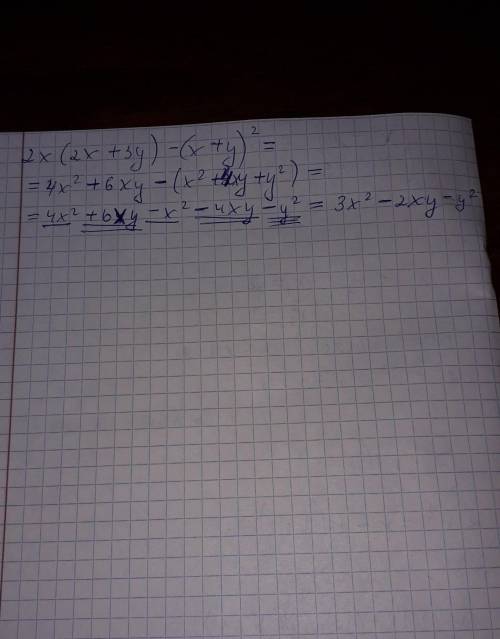 2x(2x+3y)-(x+y)² =
= 4x² + 6xy - (x² + 4xy + y²) =
= 4x² + 6xy - x² - 4xy - y² = 3x² - 2xy - y²